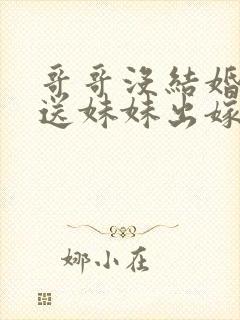 哥哥沒結婚
送妹妹出嫁
娜小在